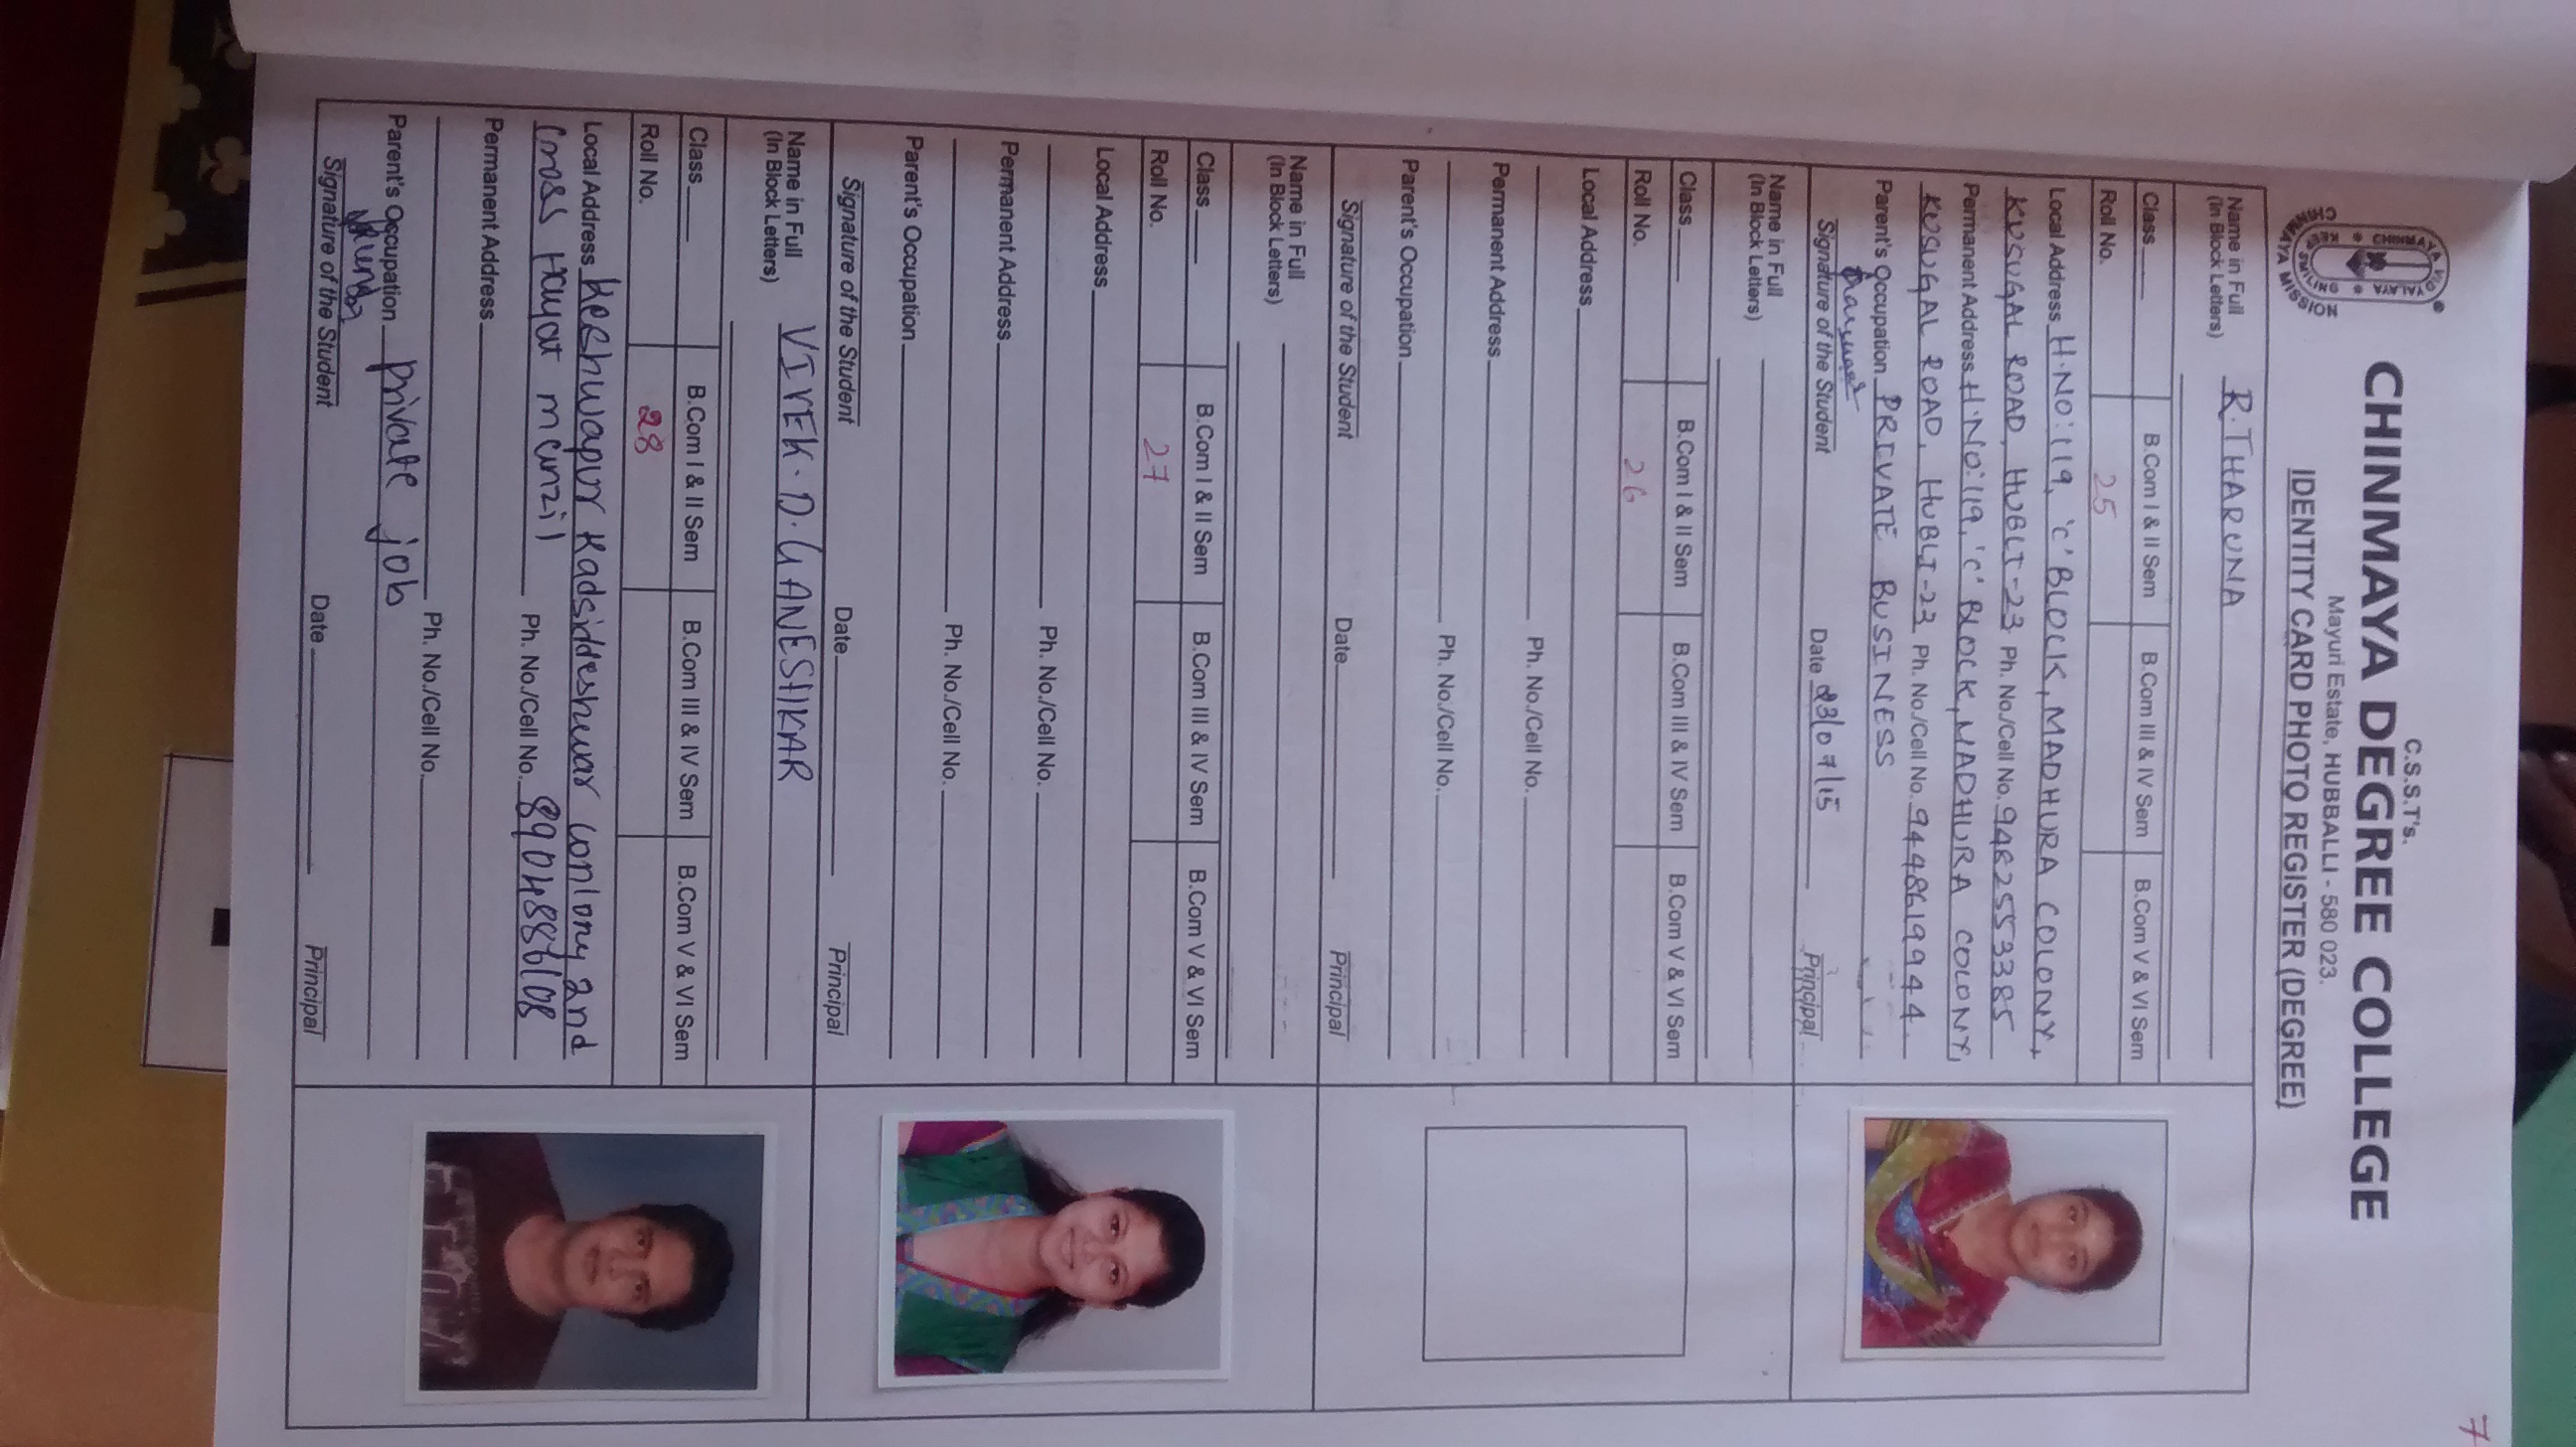 7
C.S.S.T's.
CHINMAYA DEGREE COLLEGE
Mayuri Estate, HUBBALLI - 580 023.
IDENTITY CARD PHOTO REGISTER (DEGREE)
Name in Full R. THARUNA
(In Block Letters)
Class B.Com I & II Sem B.Com III & IV Sem B.Com V & VI Sem
Roll No. 25
Local Address H.NO:119, 'C' BLOCK, MADHURA COLONY,
KUSUGAL ROAD, HUBLI-23 Ph. No./Cell No. 9482553385
Permanent Address H.NO:119, 'C' BLOCK, MADHURA COLONY,
KUSUGAL ROAD, HUBLI-23 Ph. No./Cell No. 9448619944
Parent's Occupation PRIVATE BUSINESS
Signature of the Student Date 23/07/15 Principal
Name in Full
(In Block Letters)
Class B.Com I & II Sem B.Com III & IV Sem B.Com V & VI Sem
Roll No. 26
Local Address
Ph. No./Cell No.
Permanent Address
Ph. No./Cell No.
Parent's Occupation
Signature of the Student Date Principal
Name in Full
(In Block Letters)
Class B.Com I & II Sem B.Com III & IV Sem B.Com V & VI Sem
Roll No. 27
Local Address
Ph. No./Cell No.
Permanent Address
Ph. No./Cell No.
Parent's Occupation
Signature of the Student Date Principal
Name in Full VIVEK. D. GANESHKAR
(In Block Letters)
Class B.Com I & II Sem B.Com III & IV Sem B.Com V & VI Sem
Roll No. 28
Local Address Keshwapur Kadsiddeshwar conlony 2nd
Cross Hayat manzil Ph. No./Cell No. 8904886108
Permanent Address
Ph. No./Cell No.
Parent's Occupation Private job
Signature of the Student Date Principal